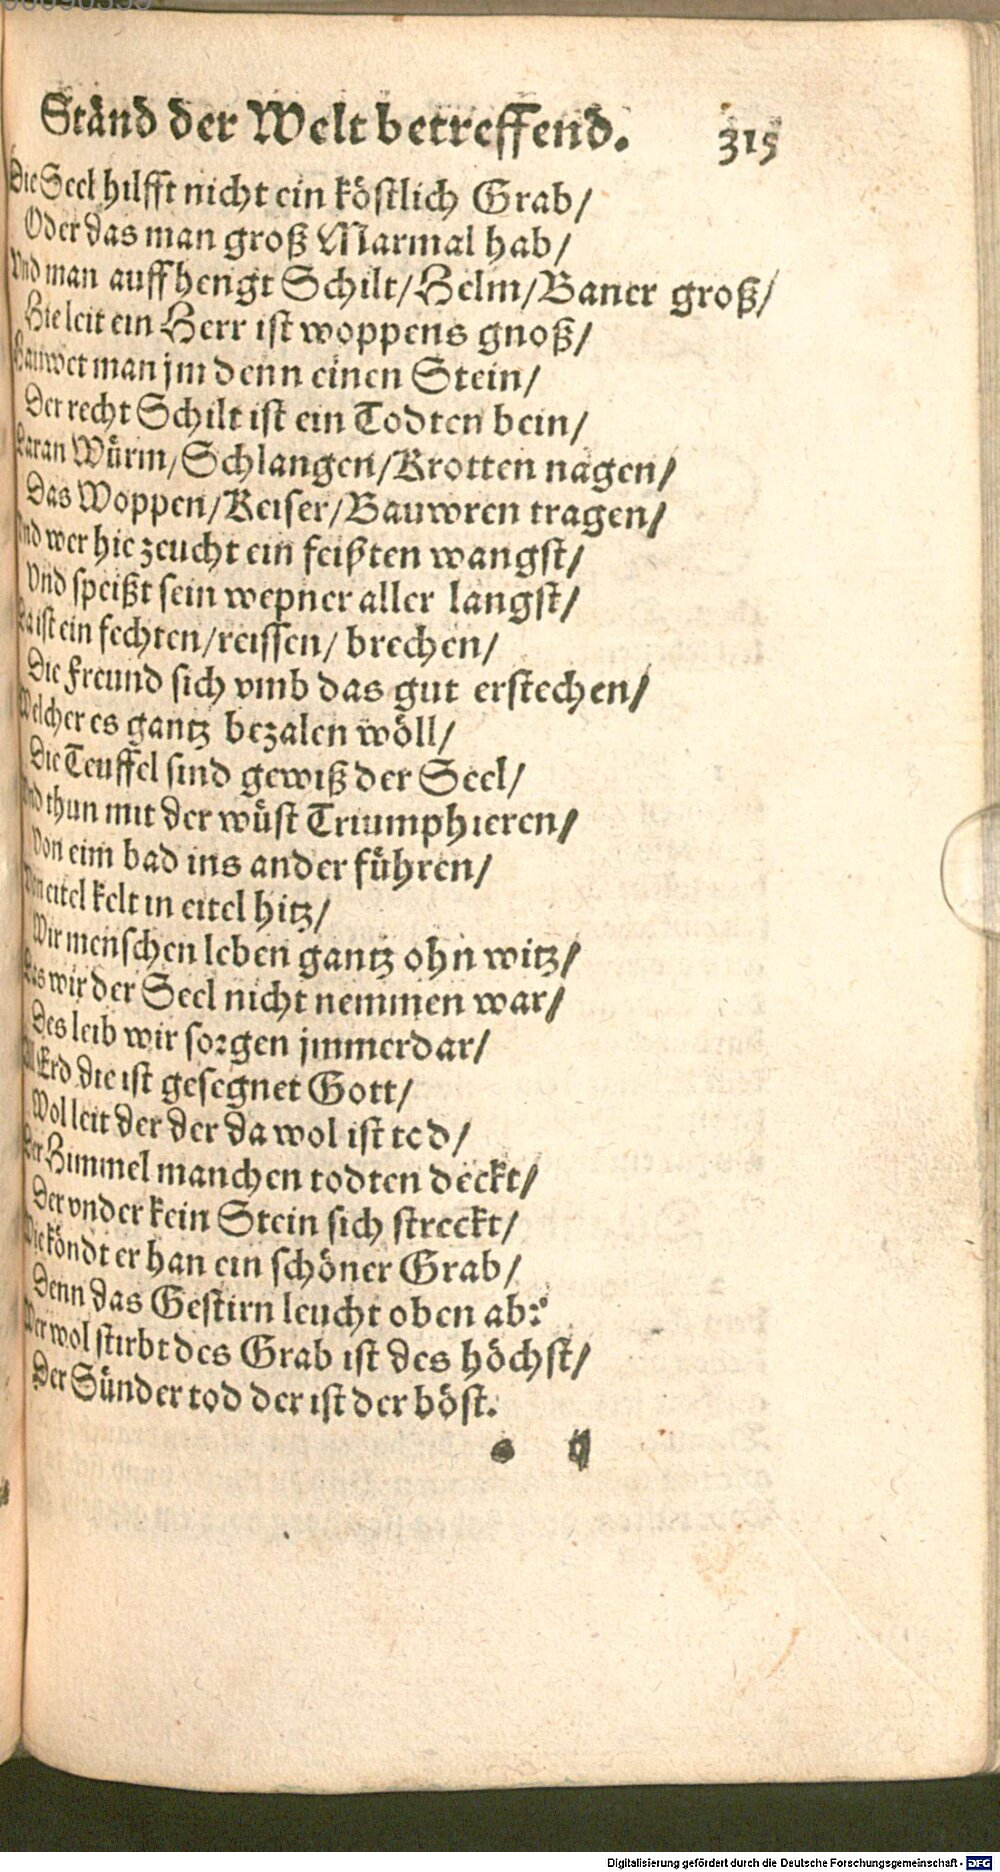 Ständ der Welt betreffend. 315
Die Seel hilfft nicht ein köstlich Grab/
Oder das man groß Marmal hab/
Vnd man auffhengt Schilt/Helm/Baner groß/
Hie leit ein Herr ist woppens gnoß/
Bauwet man jm denn einen Stein/
Der recht Schilt ist ein Todten bein/
Daran Würm/Schlangen/Krotten nagen/
Das Woppen/Keiser/Bauwren tragen/
Vnd wer hie zeucht ein feißten wangst/
Vnd speißt sein wepner aller langst/
Da ist ein fechten/reissen/ brechen/
Die Freund sich vmb das gut erstechen/
Welcher es gantz bezalen wöll/
Die Teuffel sind gewiß der Seel/
Vnd thun mit der wüst Triumphieren/
Von eim bad ins ander führen/
Von eitel kelt in eitel hitz/
Wir menschen leben gantz ohn witz/
Das wir der Seel nicht nemmen war/
Des leib wir sorgen jmmerdar/
All Erd die ist gesegnet Gott/
Wol leit der der da wol ist tod/
Der Himmel manchen todten deckt/
Der vnder kein Stein sich streckt/
Wie köndt er han ein schöner Grab/
Denn das Gestirn leucht oben ab:
Wer wol stirbt des Grab ist des höchst/
Der Sünder tod der ist der böst.
Digitalisierung gefördert durch die Deutsche Forschungsgemeinschaft - DFG